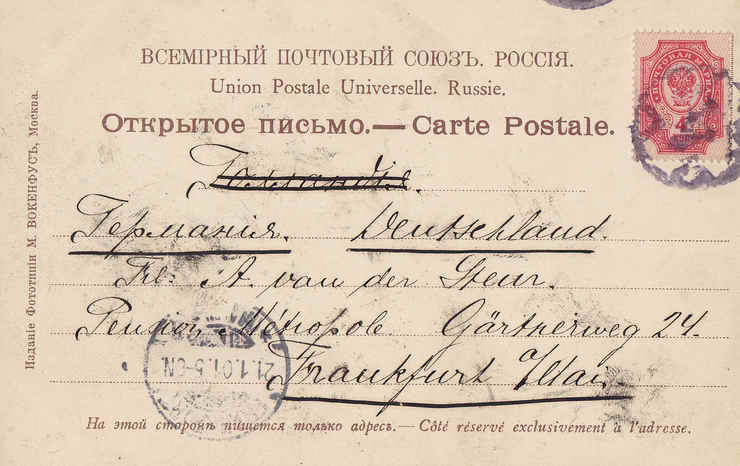 ВСЕМІРНЫЙ ПОЧТОВЫЙ СОЮЗЪ. РОССІЯ.
Union Postale Universelle. Russie.
Открытое письмо.—Carte Postale.
ПОЧТОВАЯ МАРКА
4
Голландія.
Германія. Deutschland.
Frl. A. van der Steur.
Pension Métropole Gärtnerweg 24.
Frankfurt /Main.
21.1.01.5-6N.
На этой сторонѣ пишется только адресъ.—Côté réservé exclusivement à l'adresse.
Изданіе Фототипіи М. ВОКЕНФУСЪ, Москва.